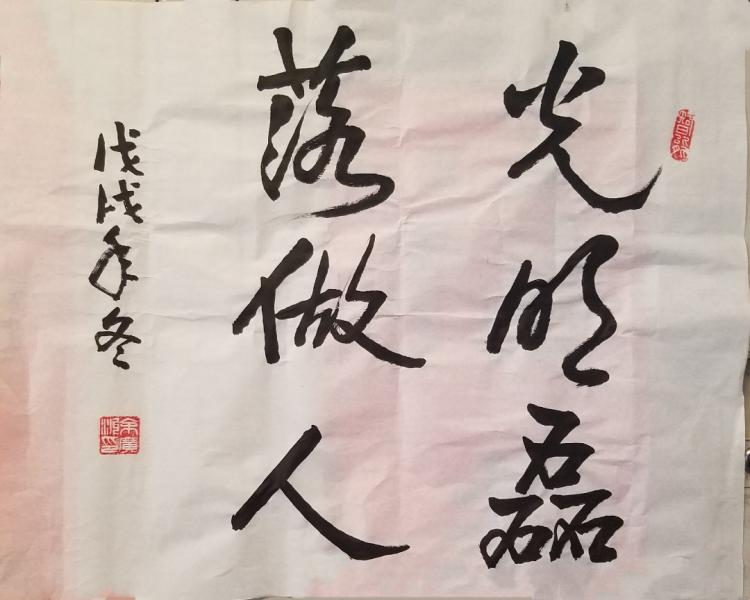 光明磊
落做人
戊戌年冬